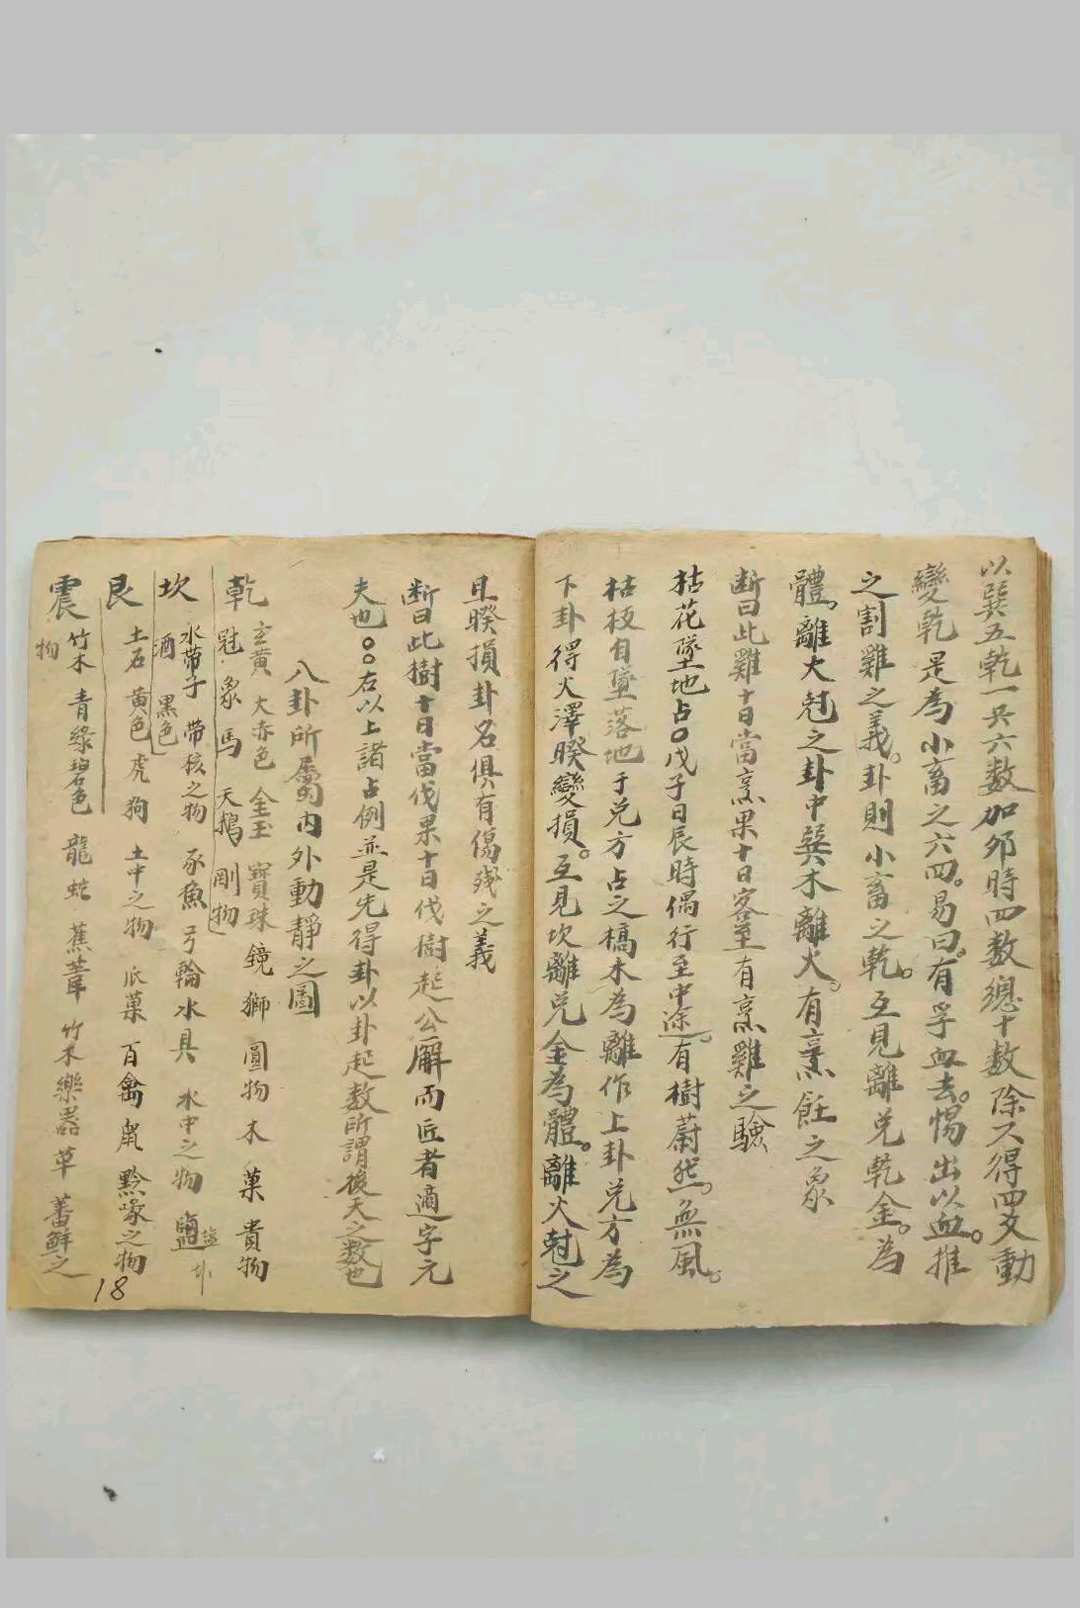 以巽五乾一共六數加卯時四数總十數除六得四爻動
變乾是為小畜之六四。易曰。有孚血去。惕出以血。推
之割雞之義。卦則小畜之乾。互見離兌乾金。為
體。離火尅之卦中巽木離火。有烹飪之象
断曰此雞十日當烹果十日客至有烹雞之驗
枯花墜地占〇戊子日辰時偶行至中途。有樹蔚然。無風。
枯枝自墜落地于兌方占之槁木為離作上卦兌方為
下卦得火澤睽變損。互見坎離兌金為體。離火尅之
且睽損卦名俱有傷殘之義
断曰此樹十日當伐果十日伐樹起公廨而匠者適字元
夫也〇〇右以上諸占例並是先得卦以卦起数所謂後天之数也
八卦所屬內外動靜之圖
乾 玄黃 大赤色 金玉 寶珠 鏡 獅 圓物 木菓 貴物
冠 象 馬 天鵝 剛物
坎 水帶子 帶核之物 豕魚 弓輪 水具 水中之物 鹽
酒 黑色
艮 土石 黃色 虎 狗 土中之物 瓜菓 百禽 鼠 黔喙之物
震 竹木 青綠碧色 龍 蛇 蕉葦 竹木樂器 草 蕃鮮之
物
18